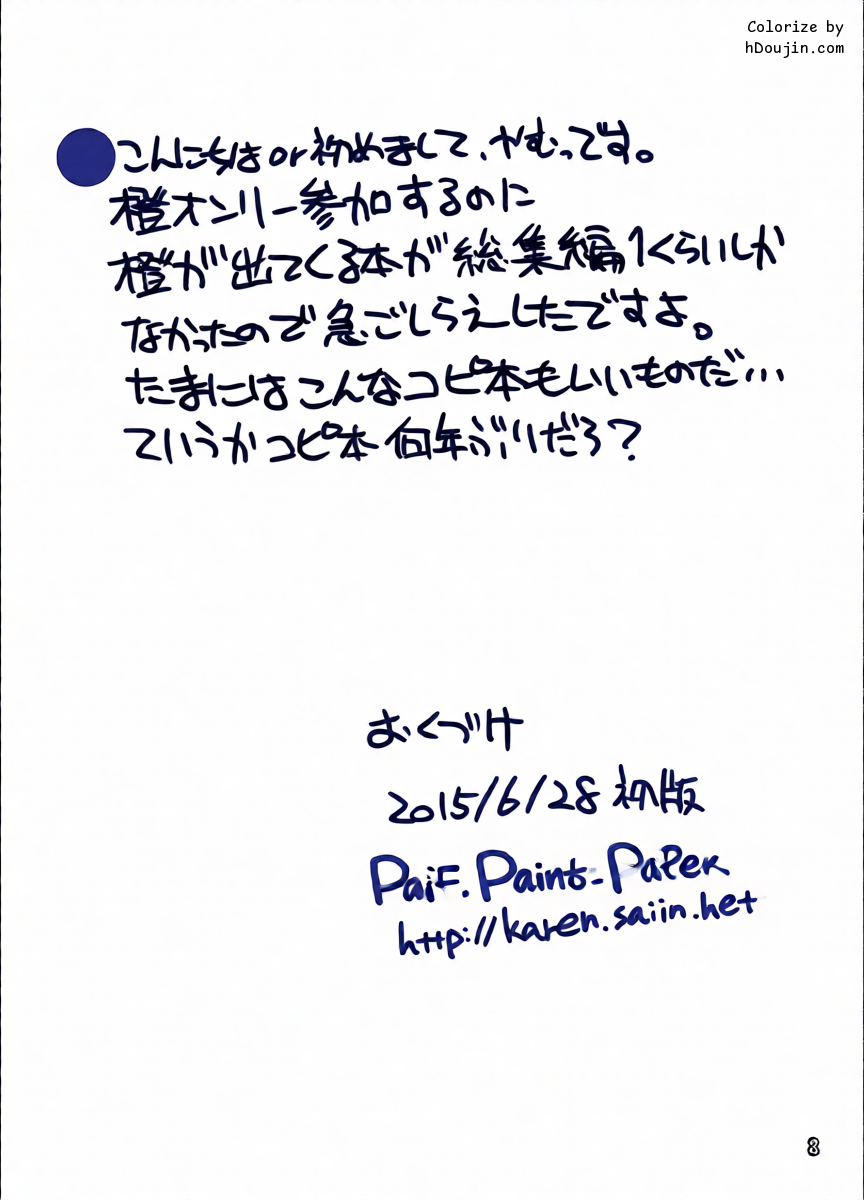 Colorize by
hDoujin.com
こんにちは or 初めまして、やむっです。
橙オンリー参加するのに
橙が出てくる本が総集編1くらいしか
なかったので急ごしらえしたですよ。
たまにはこんなコピ本もいいものだ…
ていうかコピ本何年ぶりだろ?
おくづけ
2015/6/28 初版
PaiF. Paint-PaPer
http://karen.saiin.net
8